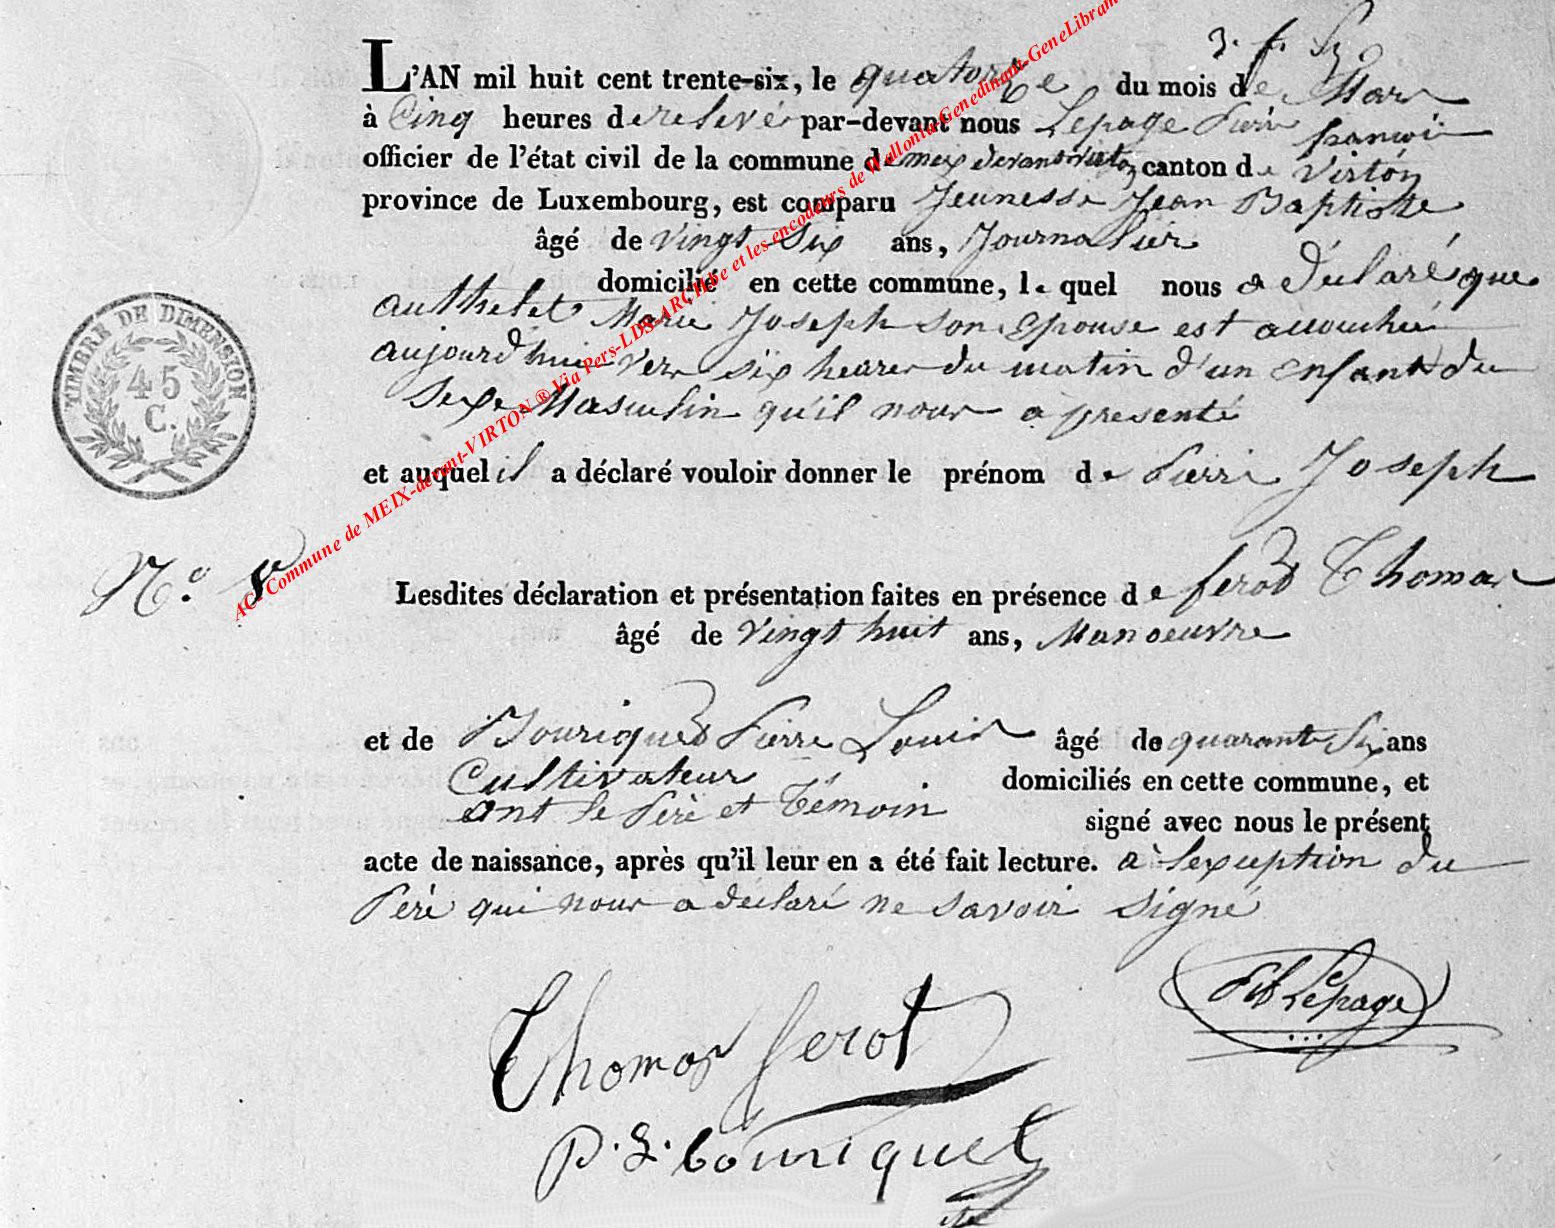 L'AN mil huit cent trente-six, le quatorze du mois de Mars
à Cinq heures de relevé par-devant nous Lepage Pierre françois
officier de l'état civil de la commune de meix devant virton canton de Virton
province de Luxembourg, est comparu Jeunesse Jean Baptiste
âgé de vingt Six ans, Journalier
domicilié en cette commune, le quel nous a déclaré que
authelet Marie Joseph son Epouse est accouchée
aujourd'hui vers six heures du matin d'un enfant du
Sexe Masculin qu'il nous a presenté
et auquel il a déclaré vouloir donner le prénom de Pierre Joseph
TIMBRE DE DIMENSION
45
C.
N.° 8
Lesdites déclaration et présentation faites en présence de ferot Thomas
âgé de vingt huit ans, Manoeuvre
et de Bouriquet Pierre Louis âgé de quarant Six ans
Cultivateur domiciliés en cette commune, et
ont le Père et Témoin signé avec nous le présent
acte de naissance, après qu'il leur en a été fait lecture. a l'exception du
Père qui nous a déclaré ne savoir signé
Lepage
Thomas ferot
P. L. bouriquet
AC-Commune de MEIX-devant-VIRTON ® Via Pers-LDS-ARCH.be et les encodeurs de Wallonia-Genedinant-GeneLibram